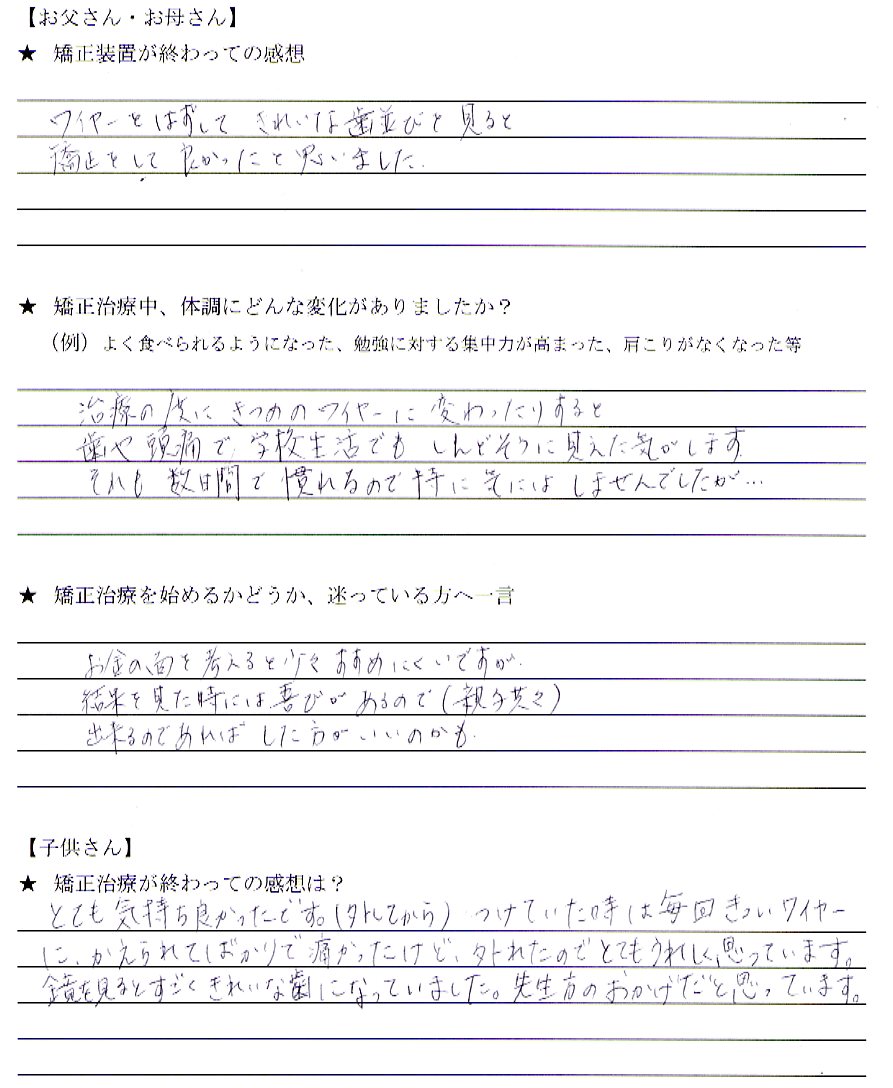 【お父さん・お母さん】
★ 矯正装置が終わっての感想
ワイヤーをはずして きれいな歯並びを見ると
矯正をして 良かったと思いました.
★ 矯正治療中、体調にどんな変化がありましたか？
（例）よく食べられるようになった、勉強に対する集中力が高まった、肩こりがなくなった等
治療の度に きつめのワイヤーに変わったりすると
歯や頭痛で、学校生活でも しんどそうに見えた気がします
それも 数日間で 慣れるので 特に 気には しませんでしたが…
★ 矯正治療を始めるかどうか、迷っている方へ一言
お金の面を考えると少々 すすめにくいですが.
結果を見た時には喜びが あるので（親子共々）
出来るのであれば した方が いいのかも.
【子供さん】
★ 矯正治療が終わっての感想は？
とても気持ち良かったです。（外してから） つけていた時は毎回きついワイヤー
に、かえられてばかりで痛かったけど、外れたのでとてもうれしく思っています。
鏡を見るとすごくきれいな歯になっていました。先生方のおかげだと思っています。